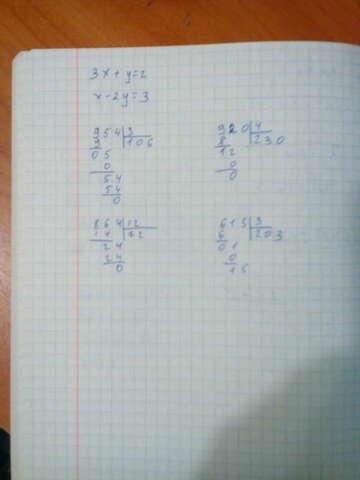 3x+y=2
x-2y=3
954|3
9|106
05
0
54
54
0
920|4
8|230
12
0
0
864|12
|72
24
24
0
615|3
6|203
01
0
15